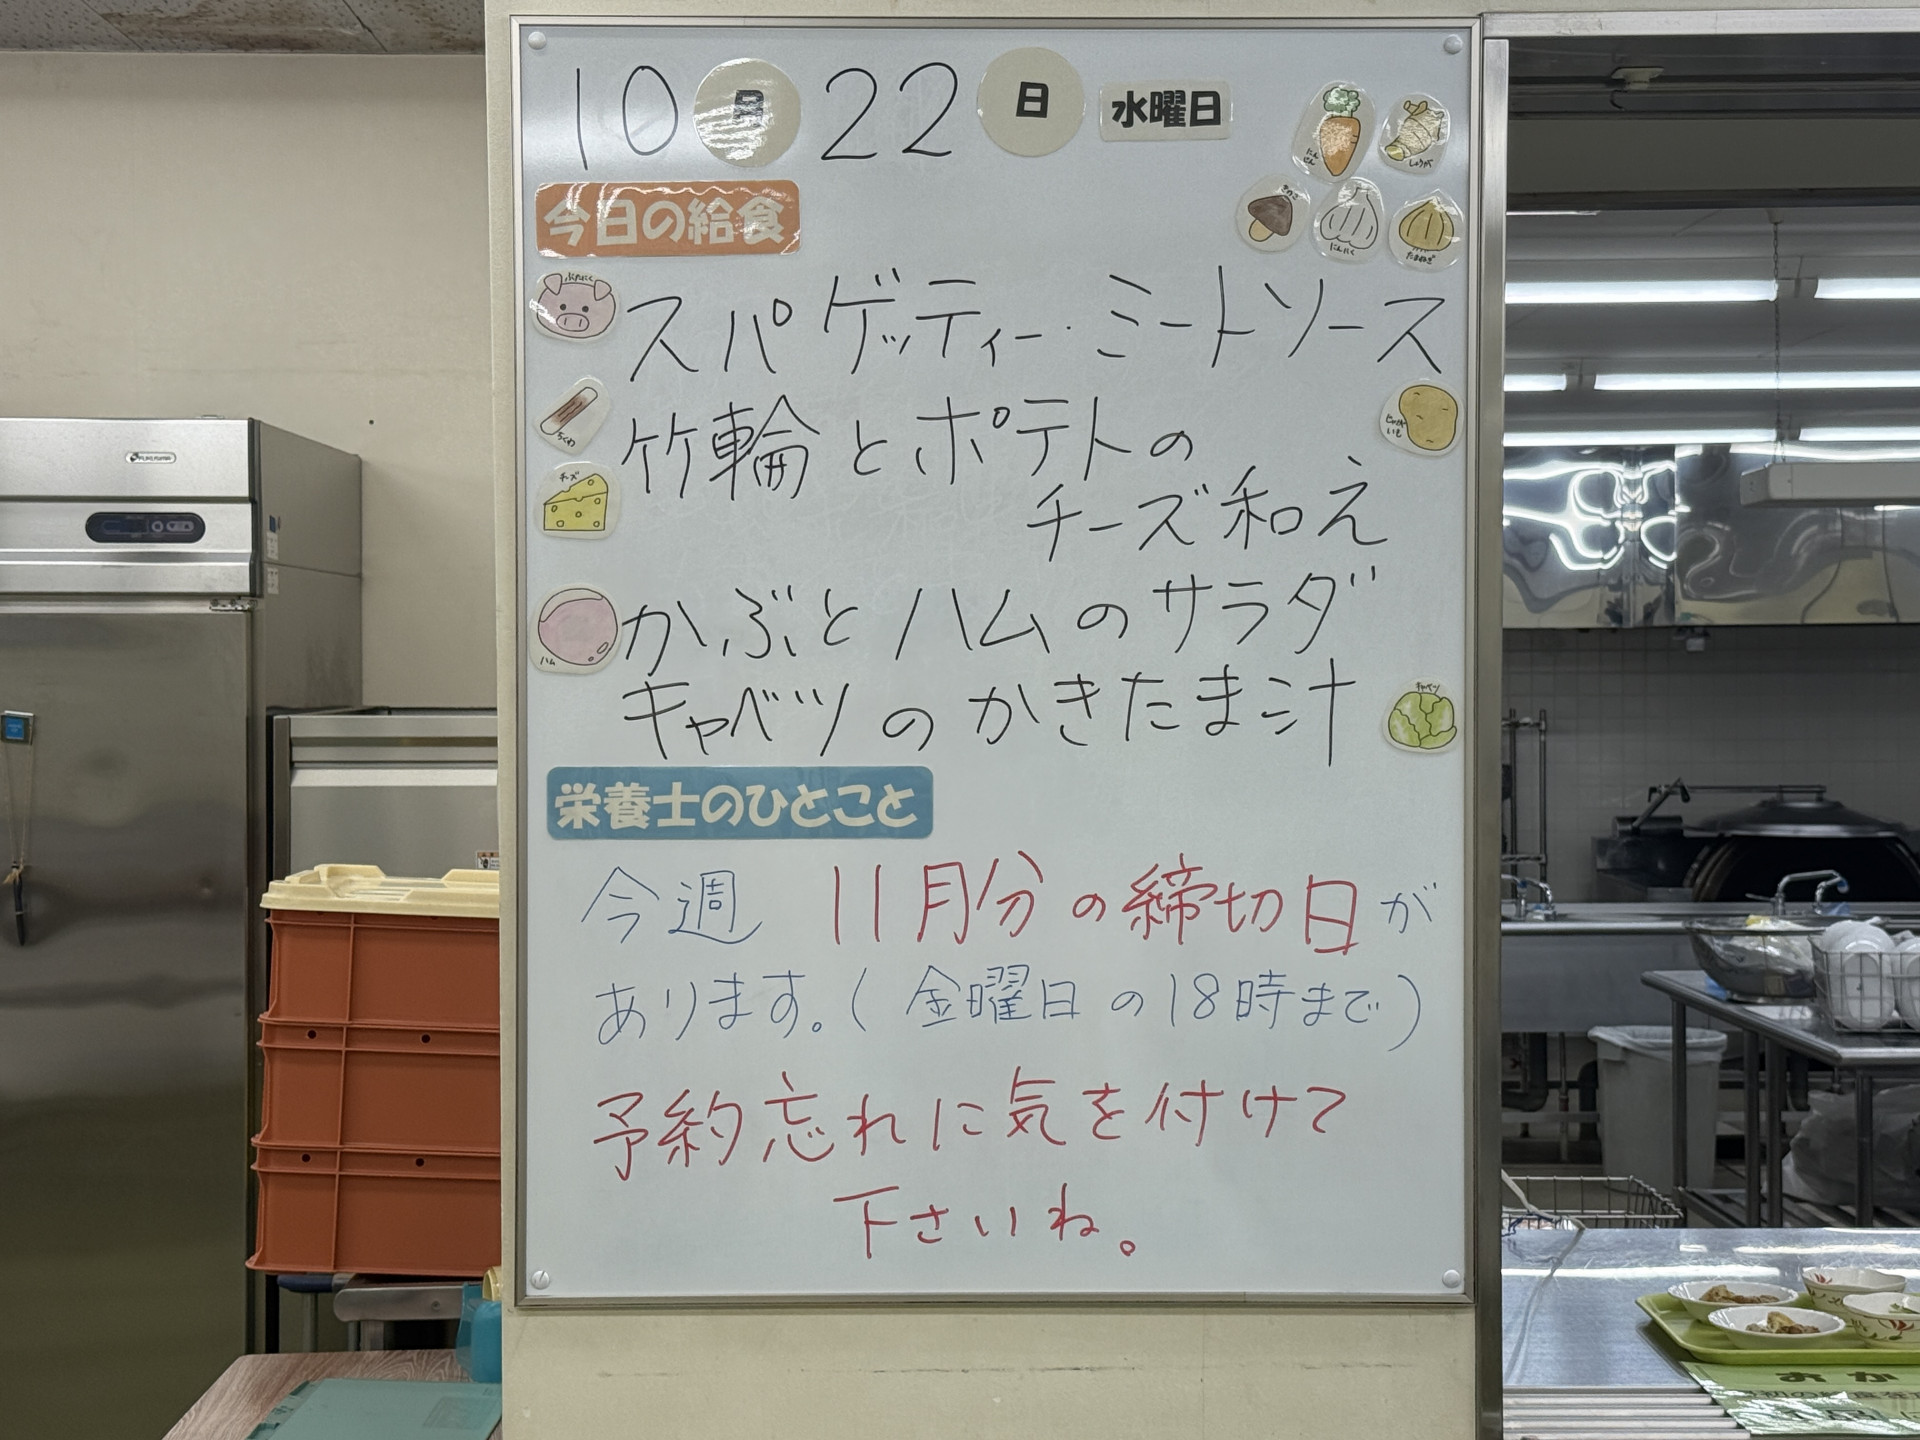 10月22日 水曜日
にんじん
しょうが
きのこ
にんにく
たまねぎ
今日の給食
ぶたにく
スパゲッティー・ミートソース
ちくわ
竹輪とポテトの
じゃがいも
チーズ
チーズ和え
ハム
かぶとハムのサラダ
キャベツのかきたま汁
キャベツ
栄養士のひとこと
今週 11月分の締切日が
あります。(金曜日の18時まで)
予約忘れに気を付けて
下さいね。
おか